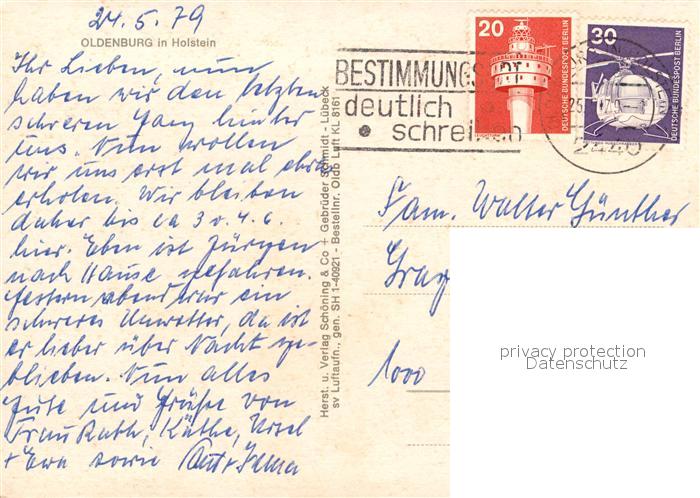 24.5.79
OLDENBURG in Holstein
Ihr Lieben, nun
haben wir den letzten
schweren Gang hinter
uns. Nun wollen
wir uns erst mal etwas
erholen. Wir bleiben
daher bis ca 3 o. 4. 6.
hier. Eben ist Jürgen
nach Hause gefahren.
Gestern abend war ein
schweres Unwetter, da ist
er lieber über Nacht ge-
blieben. Nun alles
Gute und Grüße von
Frau Rath, Käthe, Ursel
+ Ewa sowie Kurt + Irma
Herst. u. Verlag Schöning & Co + Gebrüder Schmidt - Lübeck
sv Luftaufn., gen. SH 1-40921 - Bestellnr. Oldb Luft KL 8161
BESTIMMUNGS
deutlich
schreiben
20
DEUTSCHE BUNDESPOST BERLIN
30
DEUTSCHE BUNDESPOST BERLIN
2440
Fam. Walter Günther
1000
privacy protection
Datenschutz